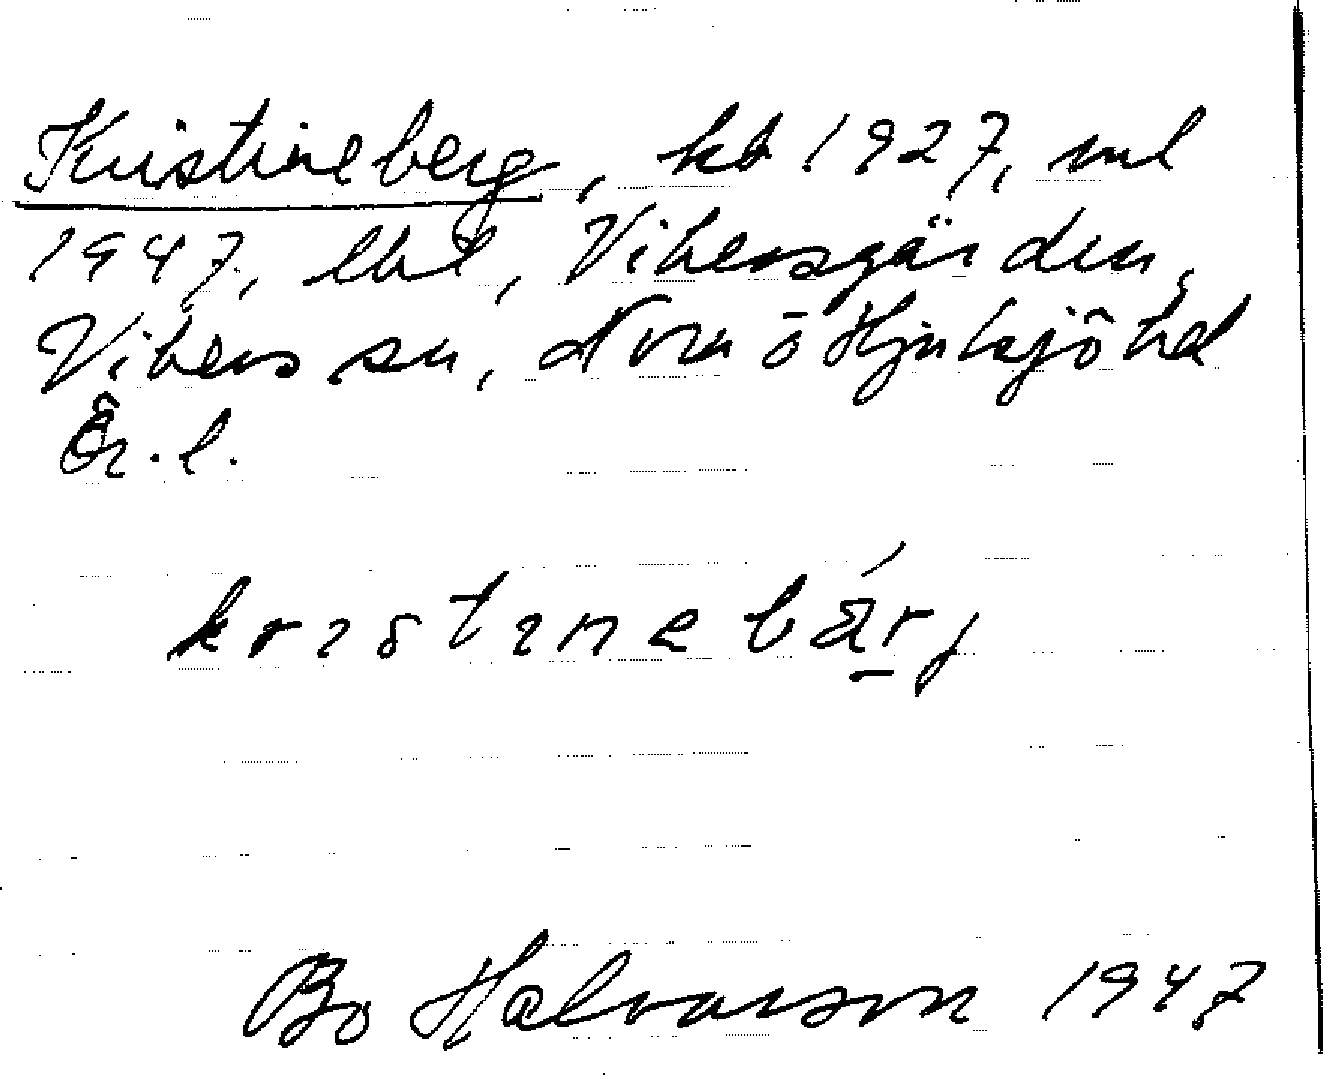 Kristineberg, kb 1927, ml
1947, lht, Vikersgården,
Vikers sn, Nora o Hjulsjö hd
Ör. l.
kristinebä́rj
Bo Halvarson 1947